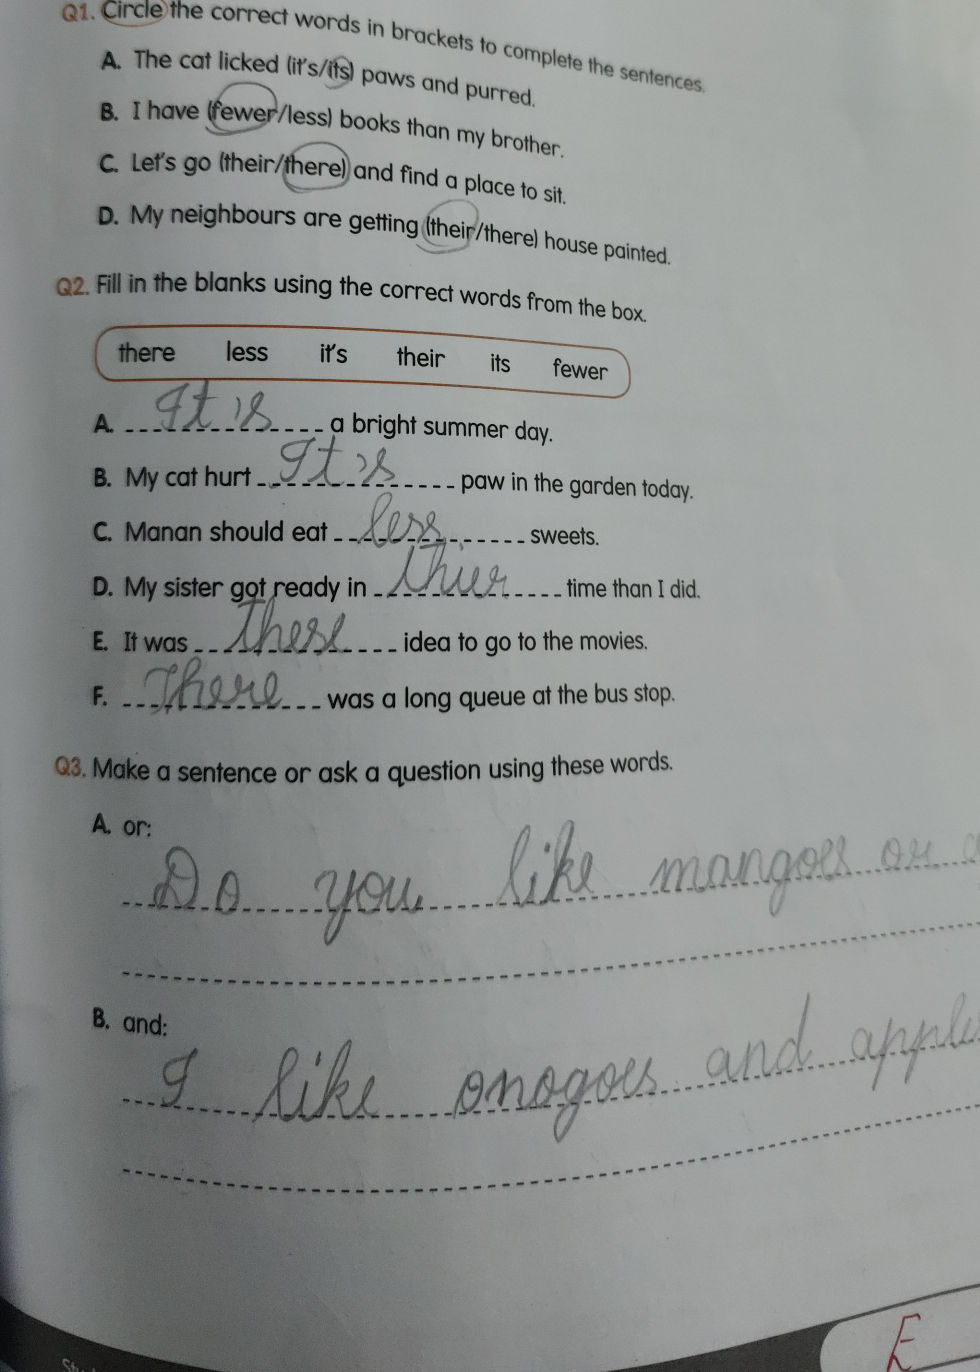 Q1. Circle the correct words in brackets to complete the sentences.
A. The cat licked (it's/its) paws and purred.
B. I have (fewer/less) books than my brother.
C. Let's go (their/there) and find a place to sit.
D. My neighbours are getting (their/there) house painted.
Q2. Fill in the blanks using the correct words from the box.
there less it's their its fewer
A. It is a bright summer day.
B. My cat hurt It is paw in the garden today.
C. Manan should eat less sweets.
D. My sister got ready in thier time than I did.
E. It was these idea to go to the movies.
F. There was a long queue at the bus stop.
Q3. Make a sentence or ask a question using these words.
A. or:
Do you like mangoes or
B. and:
I like and